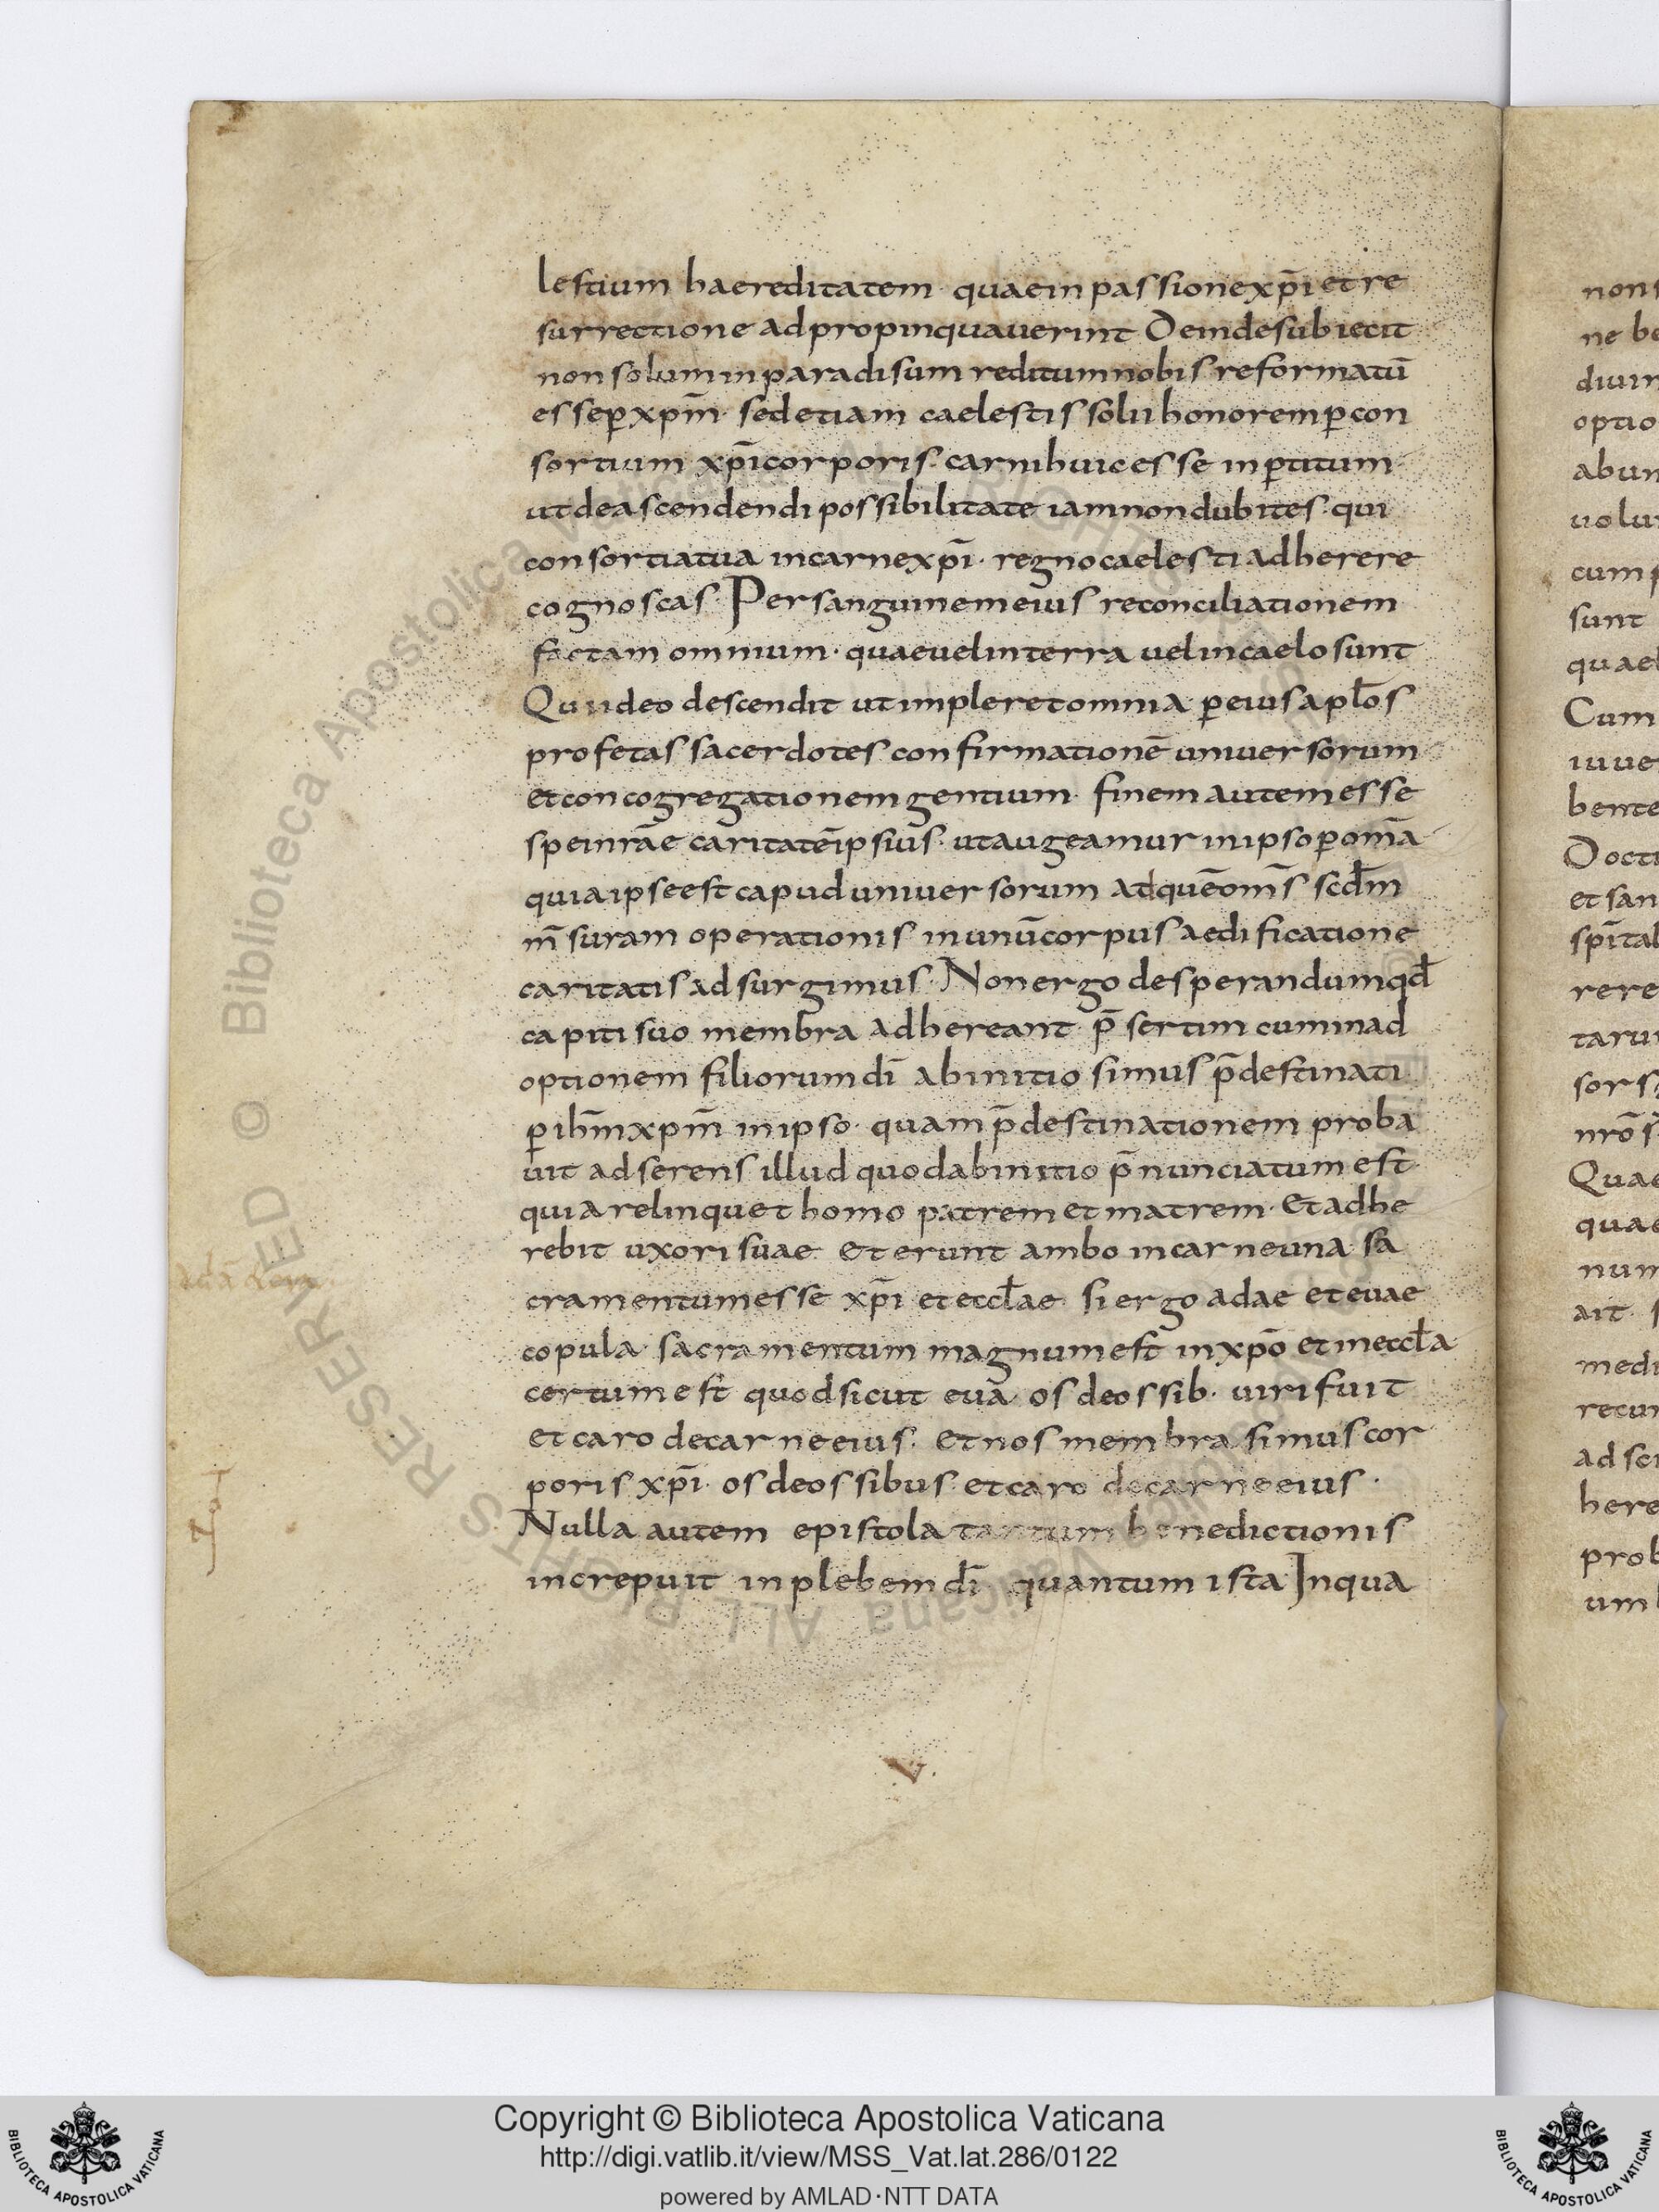 lestium haereditatem· quae in passione xp̄i et re
surrectione adpropinquauerint Deinde subiecit
non solum in paradisum reditum nobis reformatū
esse ꝑ xp̄m· sed etiam caelestis solii honorem ꝑ con
sortium xp̄i corporis· carni huic esse inꝑtitum·
ut de ascendendi possibilitate iam non dubites· qui
consortia tua in carne xp̄i· regno caelesti adherere
cognoscas· Per sanguinem eius reconciliationem
factam omnium· quae uel in terra uel in caelo sunt
Qui ideo descendit ut impleret omnia ꝑ eius apl̄os
profetas sacerdotes confirmationē uniuersorum
et concogregationem gentium· finem autem esse
spei nr̄ae caritatē ipsius· ut augeamur in ipso ꝑ om̄a
quia ipse est capud uniuersorum ad quē om̄s scd̄m
m̄suram operationis in unū corpus aedificatione
caritatis adsurgimus· Non ergo desperandum qd̄
capiti suo membra adhereant· p̄sertim cum in ad
optionem filiorum dī ab initio simus p̄destinati
ꝑ ih̄m xp̄m in ipso· quam p̄destinationem proba
uit adserens illud quod ab initio p̄nunciatum est·
quia relinquet homo patrem et matrem· Et adhe
rebit uxori suae et erunt ambo in carne una sa
cramentum esse xp̄i et eccl̄ae si ergo adae et euae
copula· sacramentum magnum est in xp̄o et in eccl̄a
certum est quod sicut eua os de ossib· uiri fuit
et caro de carne eius· et nos membra simus cor
poris xp̄i· os de ossibus et caro de carne eius·
Nulla autem epistola tantum benedictionis
increpuit in plebem dī quantum ista In qua
V.
non s
ne be
diuin
optio
abun
uolu
cum p
sunt
quae
Cum
iuue
bente
Doct
et san
sp̄ital
rere
taru
sors
nr̄o s
Quae
quae
num
ait s
medi
recu
ad sc
here
prob
um
© Biblioteca Apostolica Vaticana ALL RIGHTS RESERVED
Copyright © Biblioteca Apostolica Vaticana
http://digi.vatlib.it/view/MSS_Vat.lat.286/0122
powered by AMLAD·NTT DATA
BIBLIOTECA APOSTOLICA VATICANA
BIBLIOTECA APOSTOLICA VATICANA